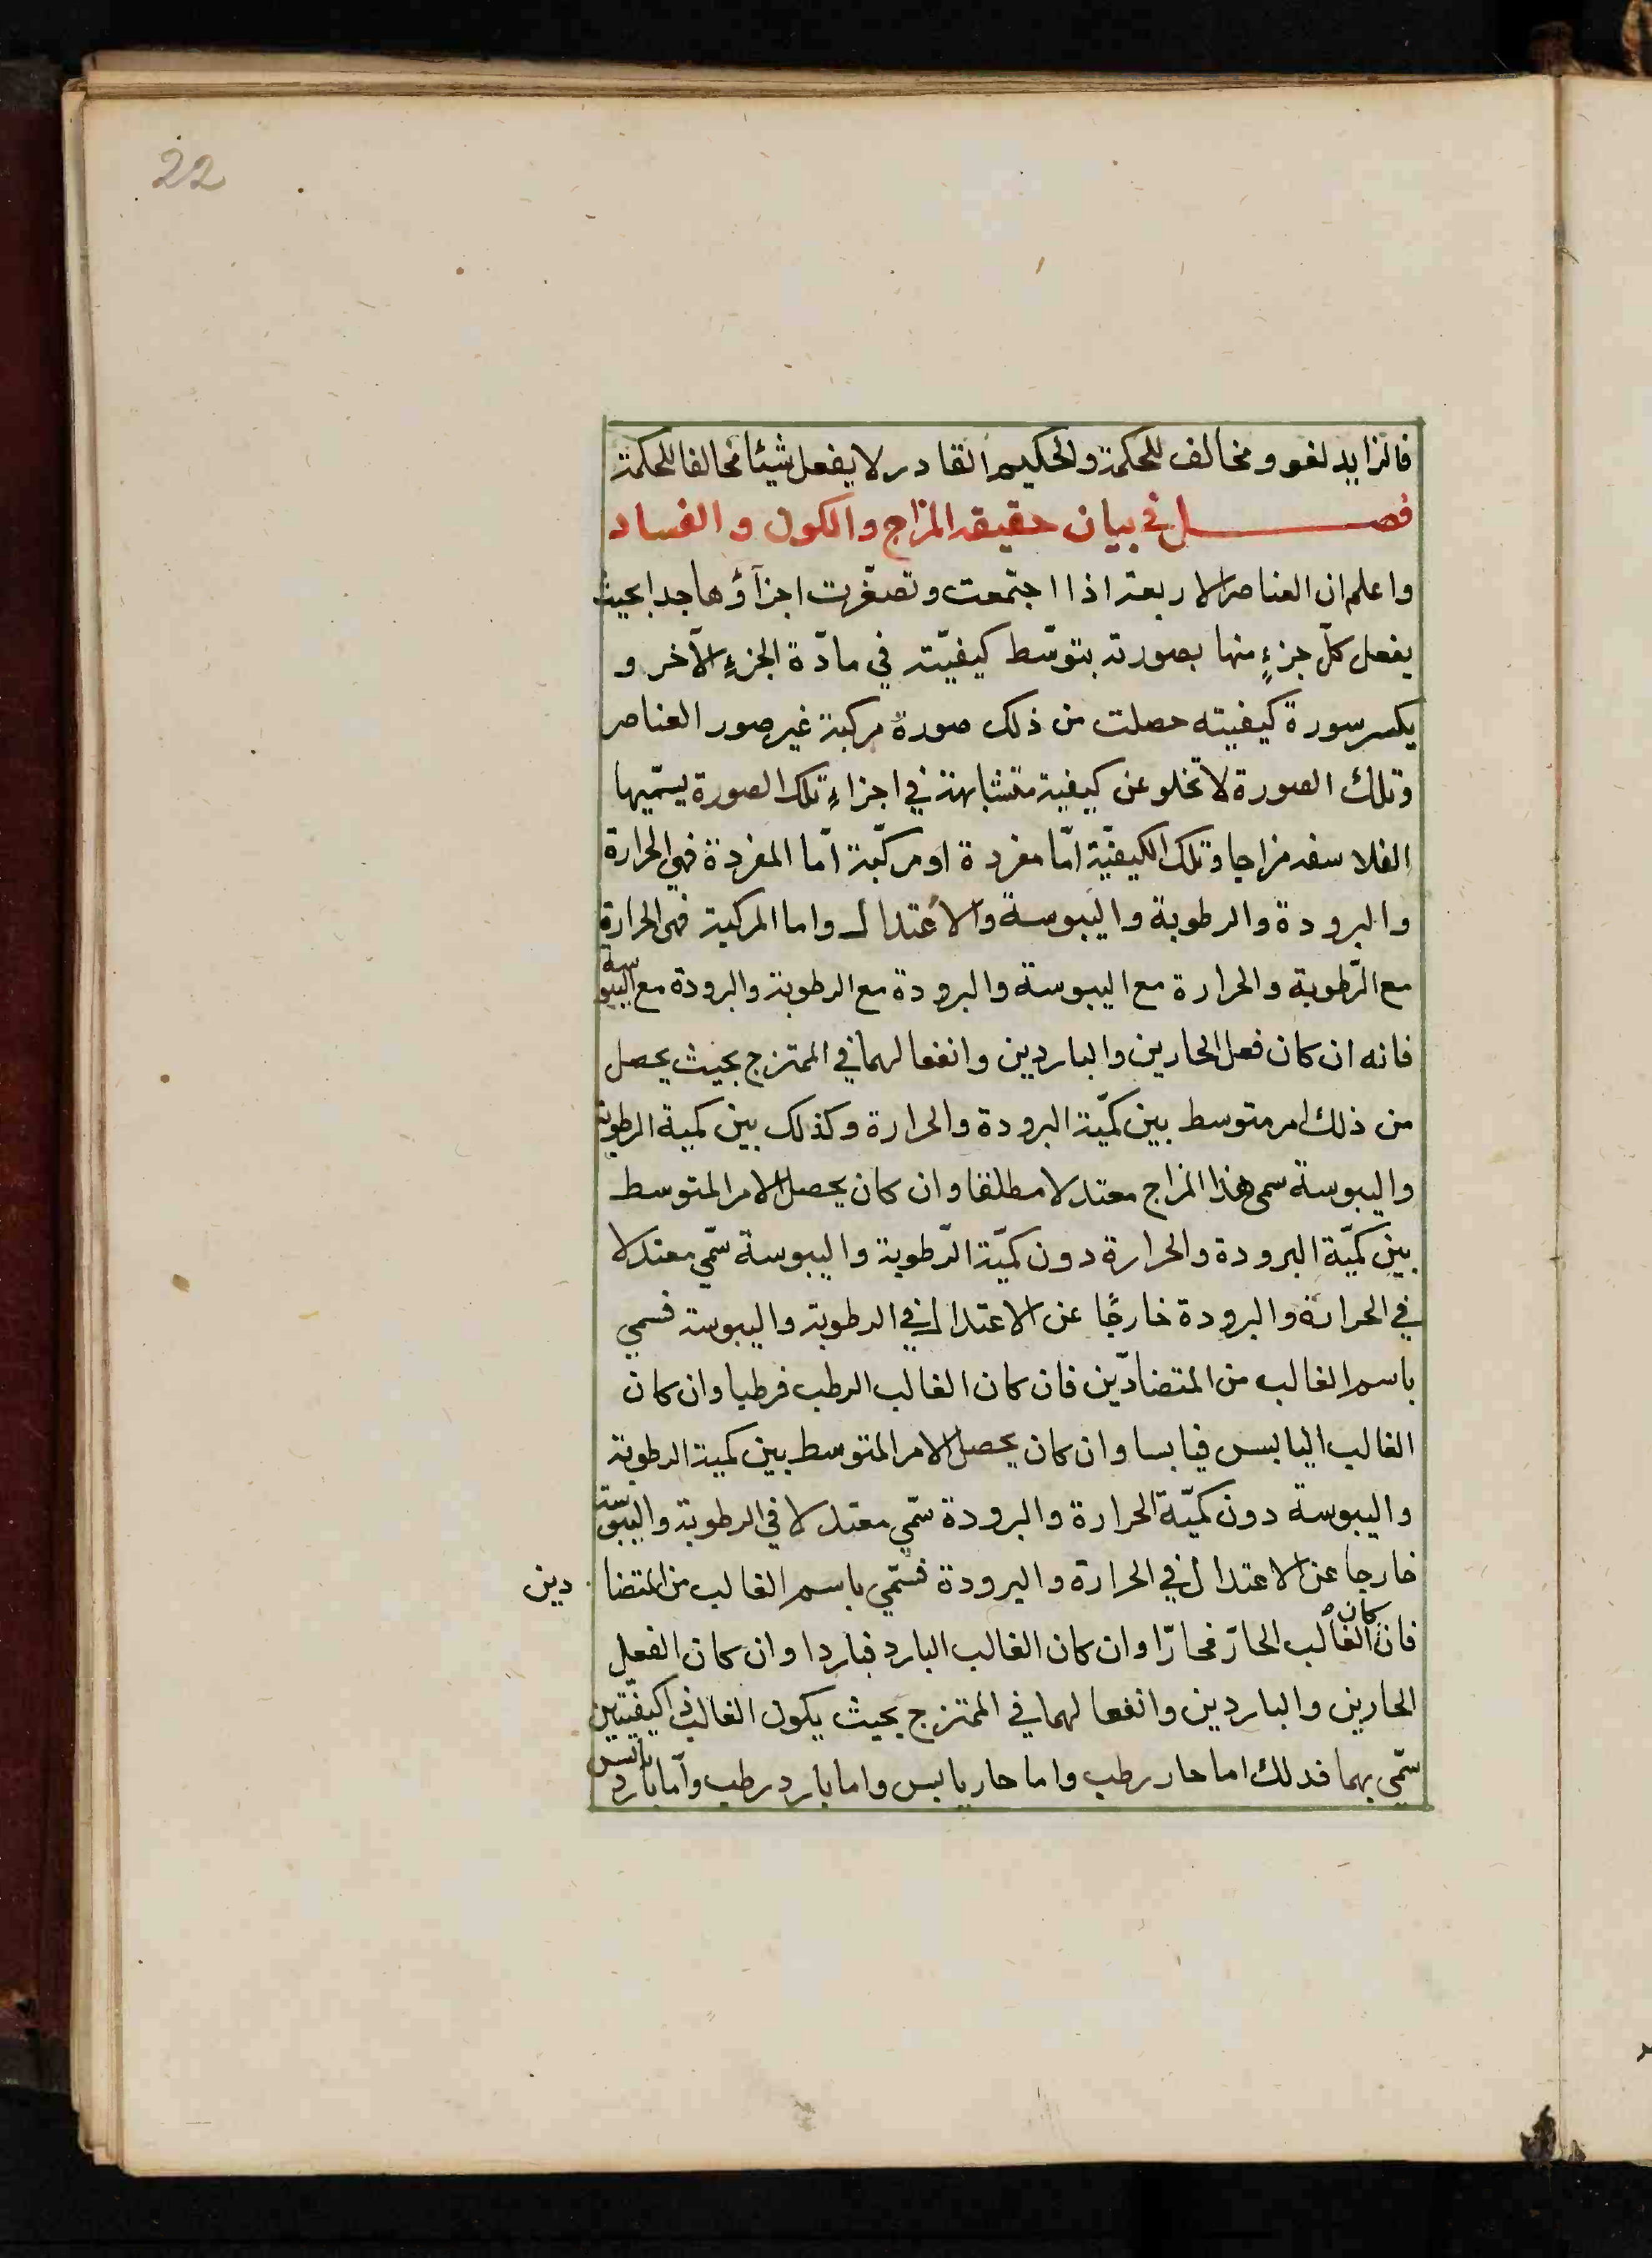 22
فالزايد لغو ومخالف للحكمة والحكيم القادر لا يفعل شيئا مخالفا للحكمة
فصل في بيان حقيقة المزاج والكون والفساد
واعلم ان العناصر الاربعة اذا اجتمعت وتصغّرت اجزآؤها جدا بحيث
يفعل كلّ جزءٍ منها بصورته بتوسّط كيفيّته في مادّة الجزءِ الآخر و
يكسر سورة كيفيته حصلت من ذلك صورة مركبة غير صور العناصر
وتلك الصورة لا تخلو عن كيفية متشابهة في اجزاءِ تلك الصورة يسمّيها
الفلاسفه مزاجا وتلك الكيفيّة امّا مفردة او مركّبة امّا المفردة فهي الحرارة
والبرودة والرطوبة واليبوسة والاعتدال واما المركبة فهى الحرارة
مع الرّطوبة والحرارة مع اليبوسة والبرودة مع الرطوبة والبرودة مع اليبوسة
فانه ان كان فعل الحارين والباردين وانفعالهما في الممتزج بحيث يحصل
من ذلك امر متوسط بين كمّية البرودة والحرارة وكذلك بين كمية الرطوبة
واليبوسة سمى هذا المزاج معتدلا مطلقا وان كان يحصل الامر المتوسط
بين كمّية البرودة والحرارة دون كمّية الرّطوبة واليبوسة سمّي معتدلا
في الحرارة والبرودة خارجًا عن الاعتدال في الرطوبة واليبوسة فسمي
باسم الغالب من المتضادّين فان كان الغالب الرطب فرطبا وان كان
الغالب اليابس فيابسا وان كان يحصل الامر المتوسط بين كمية الرطوبة
واليبوسة دون كمّية الحرارة والبرودة سمّي معتدلا في الرطوبة واليبوسة
خارجا عن الاعتدال في الحرارة والبرودة فسمّي باسم الغالب من المتضادين
فان كان الغالب الحارّ فحارّا وان كان الغالب البارد فباردا وان كان الفعل
الحارين والباردين وانفعالهما في الممتزج بحيث يكون الغالب في اكيفيّتين
سمّي بهما فدلك اما حار رطب واما حار يابس واما بارد رطب وامّا بارد يابس